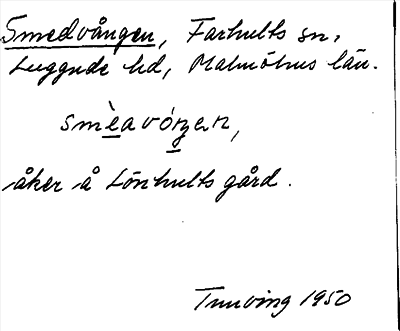 Smedvången, Farhults sn,
Luggude hd, Malmöhus län.
smèavóŋen,
åker å Lönhults gård.
Tuneving 1950